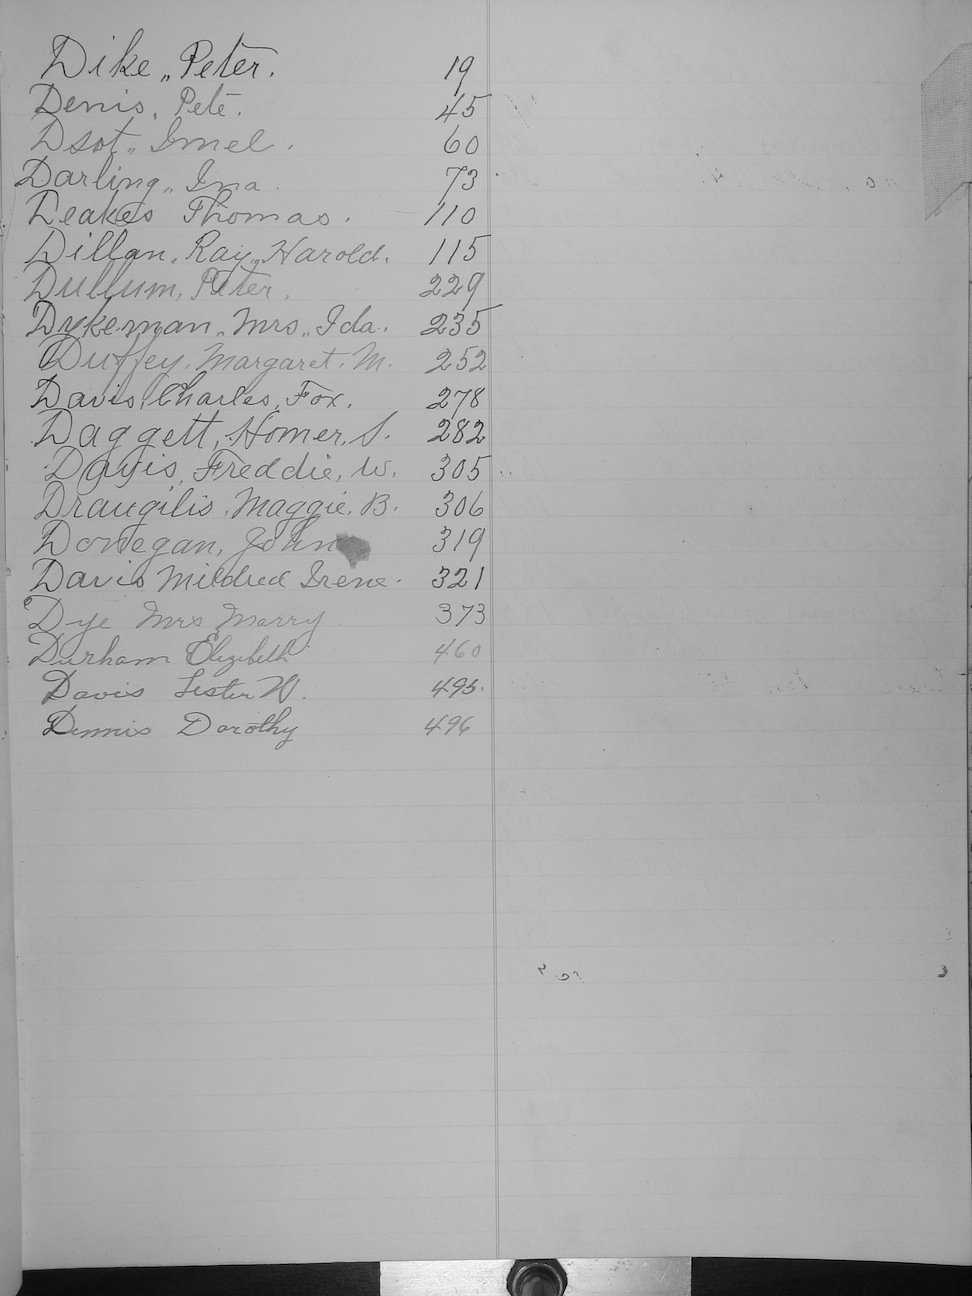 Dike,, Peter. 19
Denis, Pete. 45
Dsot,, Imel. 60
Darling,, Ina. 73
Deakes Thomas. 110
Dillan, Ray,, Harold. 115
Dullum, Peter. 229
Dykeman,, Mrs,, Ida. 235
Duffey, Margaret. M. 252
Davis, Charles, Fox. 278
Daggett, Homer, S. 282
Davis, Freddie, W. 305
Draugilis, Maggie. B. 306
Donegan, John 319
Davis Mildred Irene. 321
Dye Mrs Marry 373
Durham Elizebeth 460
Davis Lester W. 495.
Dennis Dorothy 496